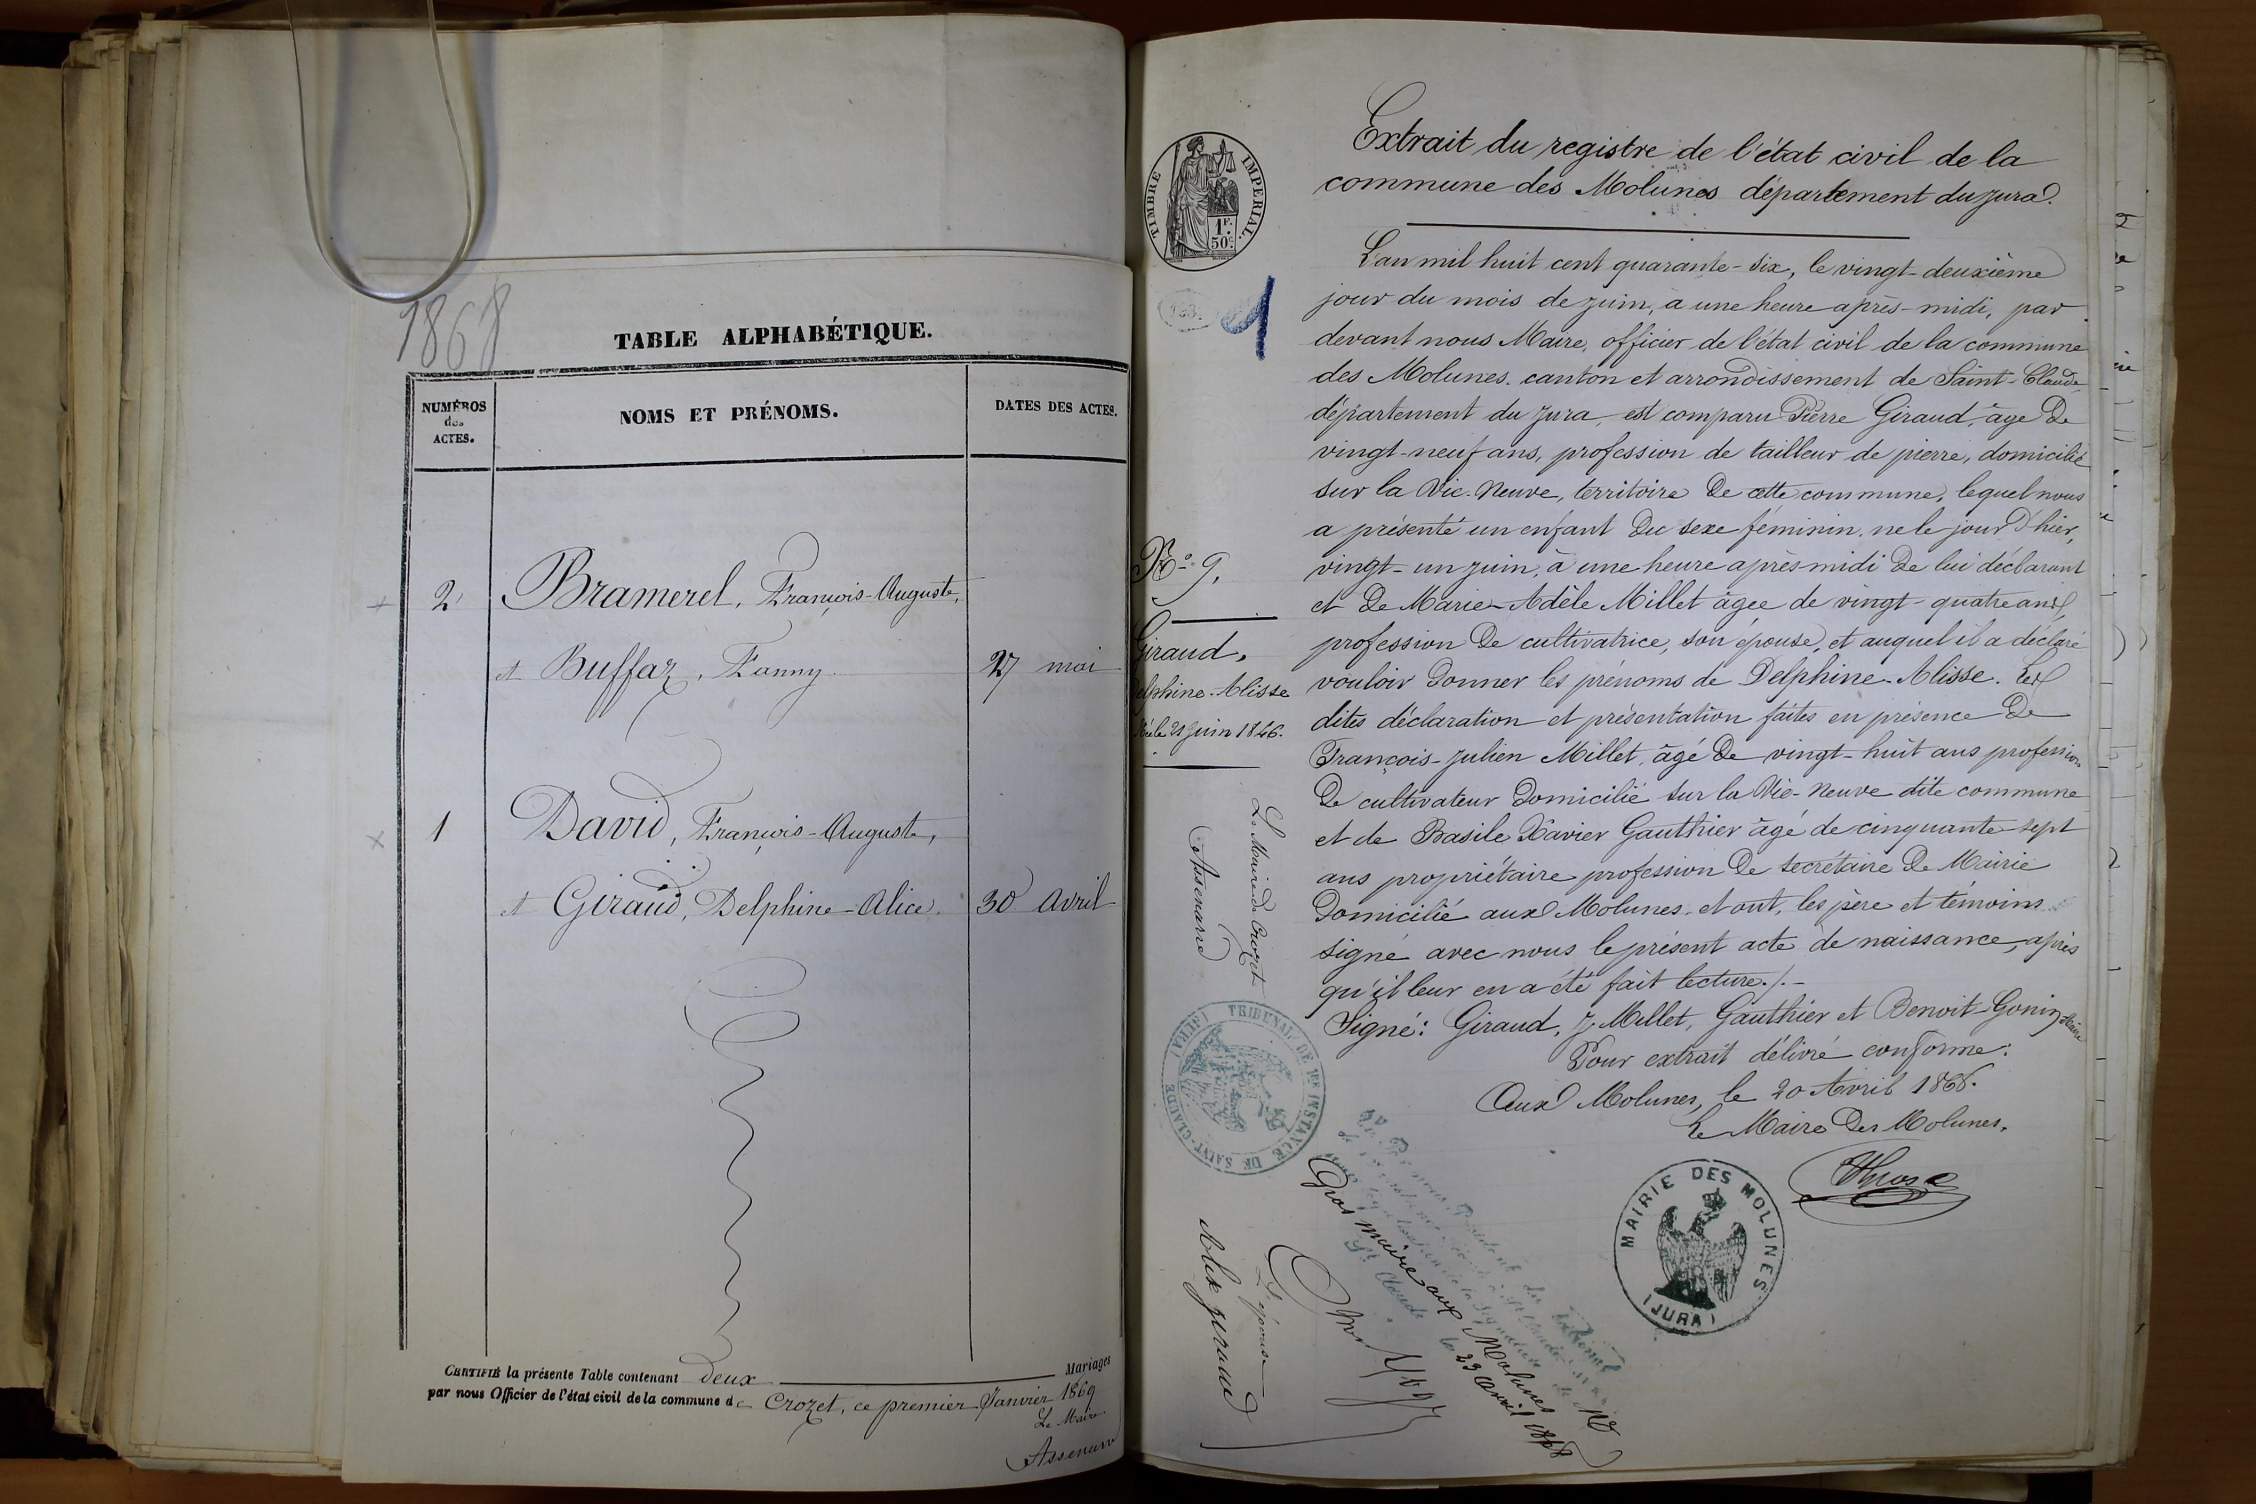 1868
TABLE ALPHABÉTIQUE.
NUMÉROS
des
ACTES.
NOMS ET PRÉNOMS.
DATES DES ACTES.
2 Bramerel, François-Auguste,
et Buffaz, Fanny. 27 mai
1 David, François-Auguste,
et Giraud, Delphine-Alice. 30 avril
CERTIFIÉ la présente Table contenant deux Mariages
par nous Officier de l'état civil de la commune de Crozet, ce premier Janvier 1869
Le Maire
Assenard
TIMBRE IMPÉRIAL.
1F.
50c.
1
No 9.
Giraud,
Delphine-Alisse
Née le 21 Juin 1846.
Le Maire de Crozet
Assenard
Extrait du registre de l'état civil de la
commune des Molunes département du Jura.
L'an mil huit cent quarante-six, le vingt-deuxième
jour du mois de juin, à une heure après-midi, par
devant nous Maire, officier de l'état civil de la commune
des Molunes. canton et arrondissement de Saint-Claude
département du Jura, est comparu Pierre Giraud, âge de
vingt-neuf ans, profession de tailleur de pierre, domicilié
sur la Vie-Neuve, territoire de cette commune, lequel nous
a présenté un enfant du sexe féminin, né le jour d'hier,
vingt-un juin, à une heure après-midi de lui déclarant
et de Marie-Adèle Millet âgée de vingt-quatre ans,
profession de cultivatrice, son épouse, et auquel il a déclaré
vouloir donner les prénoms de Delphine-Alisse. Les
dites déclaration et présentation faites en présence de
François-Julien Millet, âgé de vingt-huit ans profession
de cultivateur domicilié sur la Vie-Neuve dite commune
et de Basile Xavier Gauthier âgé de cinquante-sept
ans propriétaire profession de secrétaire de Mairie
domicilié aux Molunes, et ont, les père et témoins
signé avec nous le présent acte de naissance, après
qu'il leur en a été fait lecture./.-
Signé: Giraud, J. Millet, Gauthier et Benoit-Gonin Maire
Pour extrait délivré conforme:
Aux Molunes, le 20 Avril 1868.
Le Maire des Molunes,
MAIRIE DES MOLUNES
(JURA)
TRIBUNAL DE 1RE INSTANCE DE SAINT-CLAUDE (JURA)
du tribunal
signature de Mr
Gros maire aux Molunes
St Claude le 23 avril 1868
L'épouse
Alix giraud